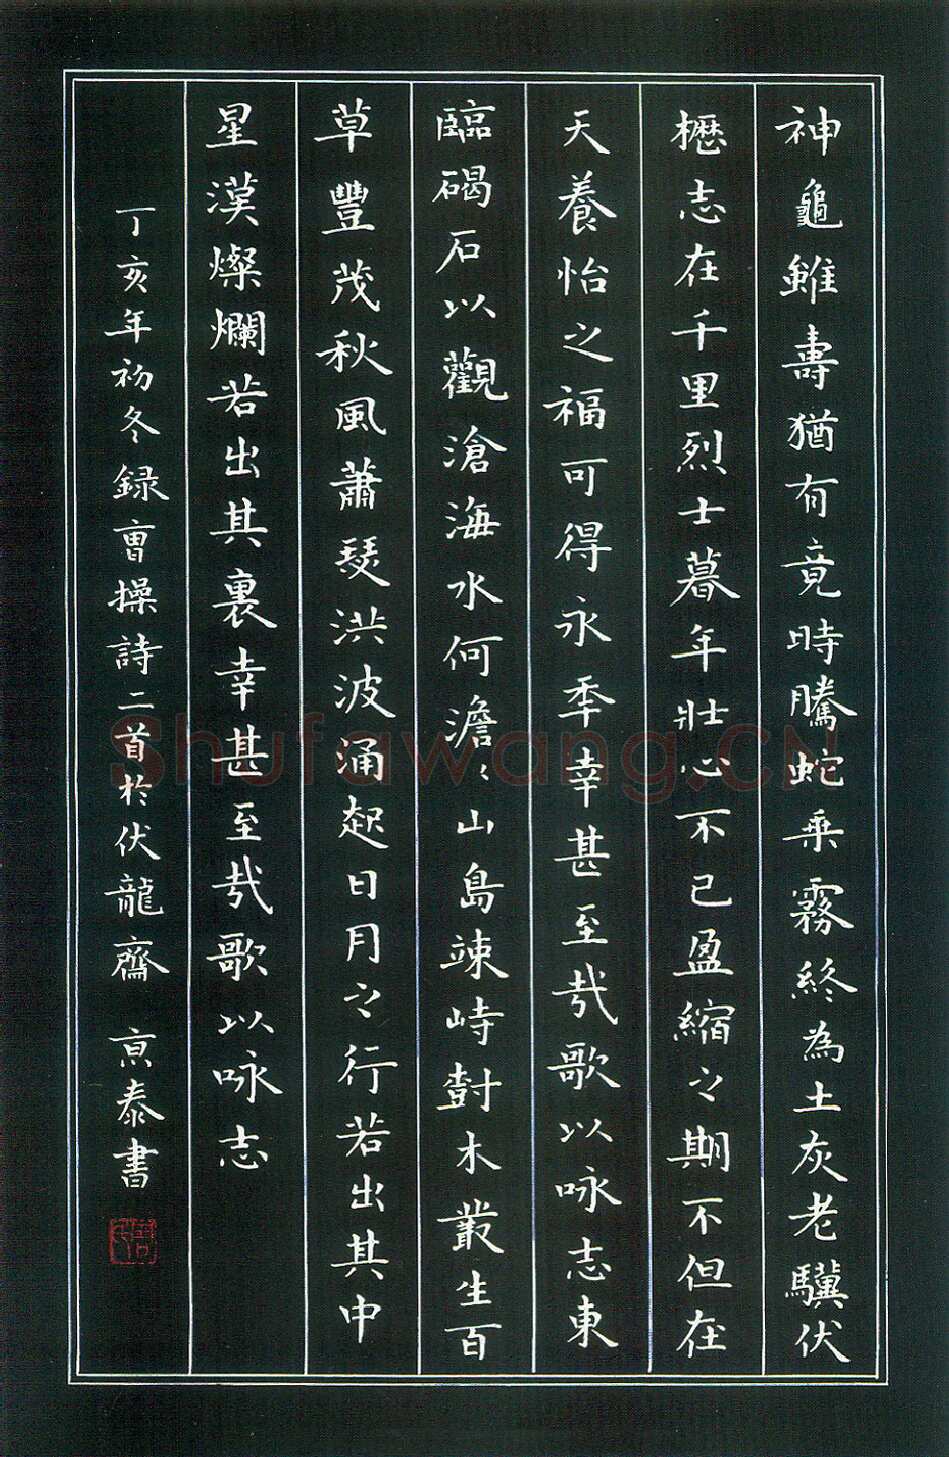 神龜雖壽猶有竟時騰蛇乘霧終為土灰老驥伏
櫪志在千里烈士暮年壯心不已盈縮之期不但在
天養怡之福可得永年幸甚至哉歌以咏志東
臨碣石以觀滄海水何澹〻山島竦峙樹木叢生百
草豐茂秋風蕭瑟洪波涌起日月之行若出其中
星漢燦爛若出其裏幸甚至哉歌以咏志
丁亥年初冬録曹操詩二首於伏龍齋 泰書
Shufawang.CN